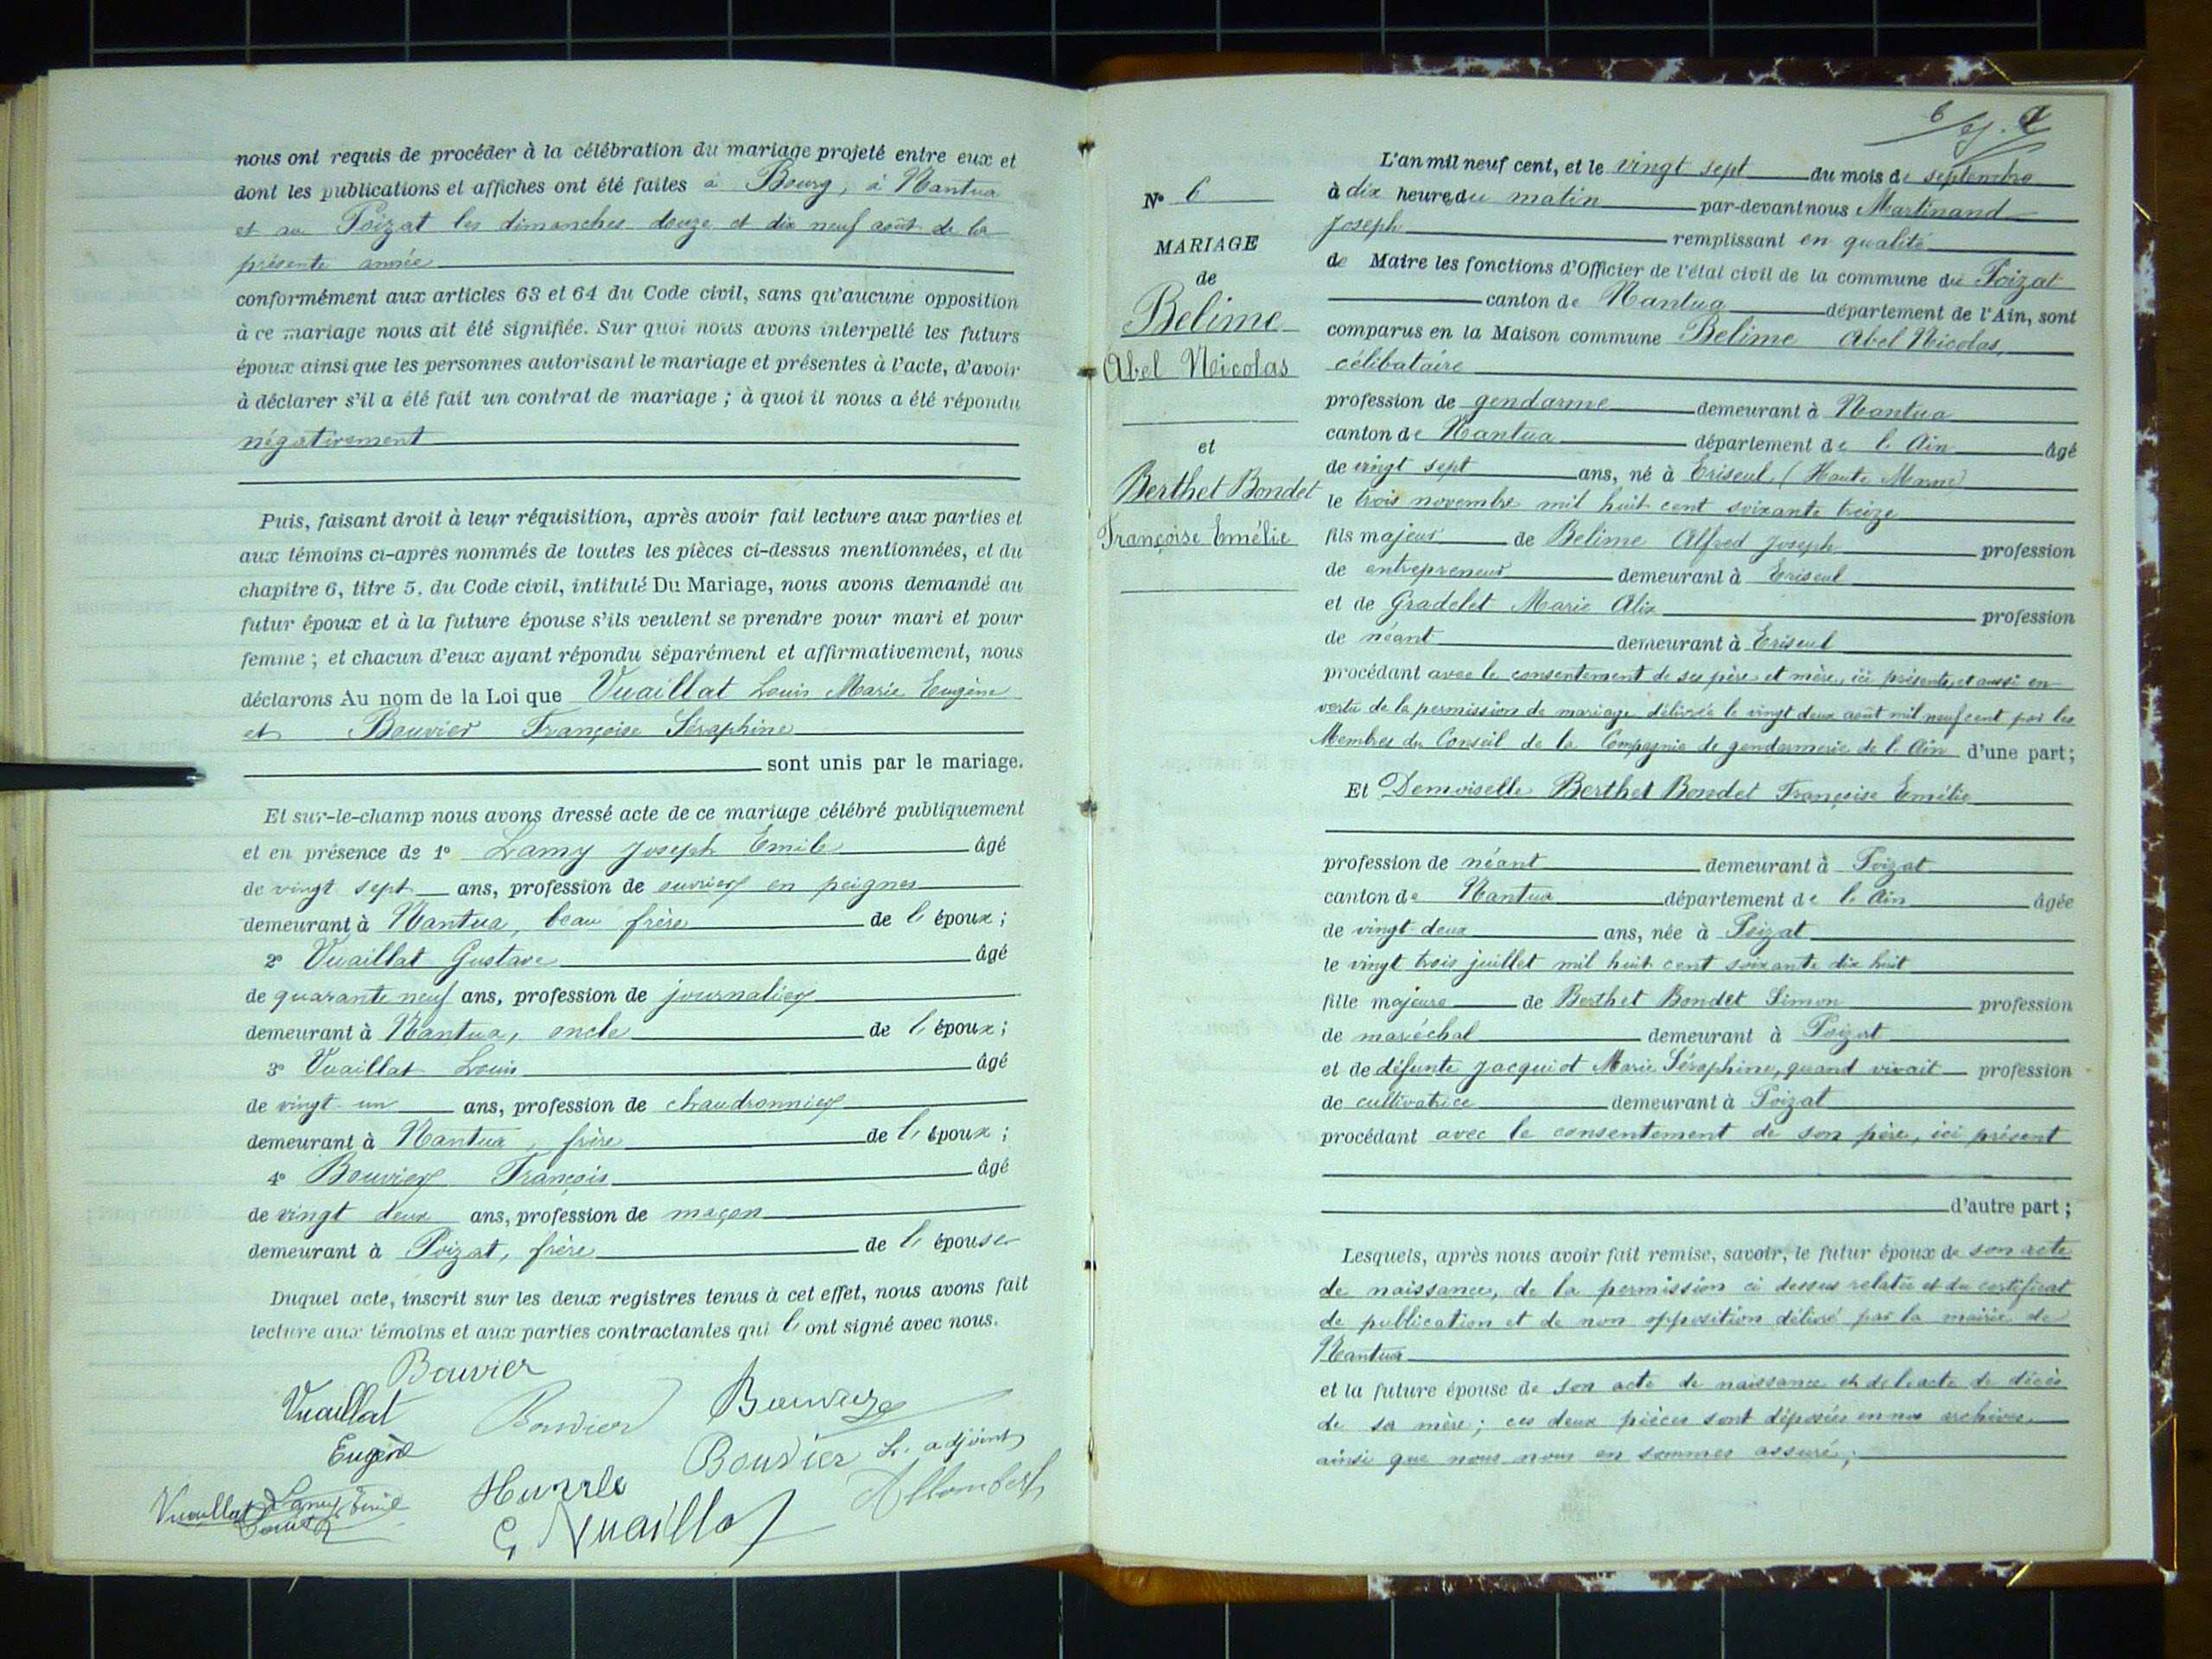 nous ont requis de procéder à la célébration du mariage projeté entre eux et
dont les publications et affiches ont été faites à Bourg, à Nantua
et au Poizat les dimanches douze et dix neuf août de la
présente année
conformément aux articles 63 et 64 du Code civil, sans qu'aucune opposition
à ce mariage nous ait été signifiée. Sur quoi nous avons interpellé les futurs
époux ainsi que les personnes autorisant le mariage et présentes à l'acte, d'avoir
à déclarer s'il a été fait un contrat de mariage ; à quoi il nous a été répondu
négativement
Puis, faisant droit à leur réquisition, après avoir fait lecture aux parties et
aux témoins ci-après nommés de toutes les pièces ci-dessus mentionnées, et du
chapitre 6, titre 5, du Code civil, intitulé Du Mariage, nous avons demandé au
futur époux et à la future épouse s'ils veulent se prendre pour mari et pour
femme ; et chacun d'eux ayant répondu séparément et affirmativement, nous
déclarons Au nom de la Loi que Vuaillat Louis Marie Eugène
et Bouvier Françoise Séraphine
sont unis par le mariage.
Et sur-le-champ nous avons dressé acte de ce mariage célébré publiquement
et en présence de 1° Lamy Joseph Emile âgé
de vingt sept ans, profession de ouvrier en peignes
demeurant à Nantua, beau frère de l'époux ;
2° Vuaillat Gustave âgé
de quarante neuf ans, profession de journalier
demeurant à Nantua, oncle de l'époux ;
3° Vuaillat Louis âgé
de vingt un ans, profession de chaudronnier
demeurant à Nantua, frère de l'époux ;
4° Bouvier François âgé
de vingt deux ans, profession de maçon
demeurant à Poizat, frère de l'épouse
Duquel acte, inscrit sur les deux registres tenus à cet effet, nous avons fait
lecture aux témoins et aux parties contractantes qui l'ont signé avec nous.
Bouvier
Vuaillat Bouvier Bouvier
Eugène Bouvier L'adjoint
Vuaillat Louis Lamy Emile Allombert
G Vuaillat
6
N° 6
MARIAGE
de
Belime
Abel Nicolas
et
Berthet Bondet
Françoise Emélie
L'an mil neuf cent, et le vingt sept du mois de septembre
à dix heures du matin par-devant nous Martinand
Joseph remplissant en qualité
de Maire les fonctions d'Officier de l'état civil de la commune du Poizat
canton de Nantua département de l'Ain, sont
comparus en la Maison commune Belime Abel Nicolas,
célibataire
profession de gendarme demeurant à Nantua
canton de Nantua département de l'Ain âgé
de vingt sept ans, né à Eriseul (Haute Marne)
le trois novembre mil huit cent soixante treize
fils majeur de Belime Alfred Joseph profession
de entrepreneur demeurant à Eriseul
et de Gradelet Marie Alix profession
de néant demeurant à Eriseul
procédant avec le consentement de ses père et mère, ici présents, et aussi en
vertu de la permission de mariage délivrée le vingt deux août mil neuf cent par les
Membres du Conseil de la Compagnie de gendarmerie de l'Ain d'une part ;
Et Demoiselle Berthet Bondet Françoise Emélie
profession de néant demeurant à Poizat
canton de Nantua département de l'Ain âgée
de vingt-deux ans, née à Poizat
le vingt trois juillet mil huit cent soixante dix huit
fille majeure de Berthet Bondet Simon profession
de maréchal demeurant à Poizat
et de défunte Jacquiot Marie Séraphine, quand vivait profession
de cultivatrice demeurant à Poizat
procédant avec le consentement de son père, ici présent
d'autre part ;
Lesquels, après nous avoir fait remise, savoir, le futur époux de son acte
de naissance, de la permission ci dessus relatée et du certificat
de publication et de non opposition délivré par la mairie de
Nantua
et la future épouse de son acte de naissance et de l'acte de décès
de sa mère ; ces deux pièces sont déposées en nos archives
ainsi que nous nous en sommes assuré ;